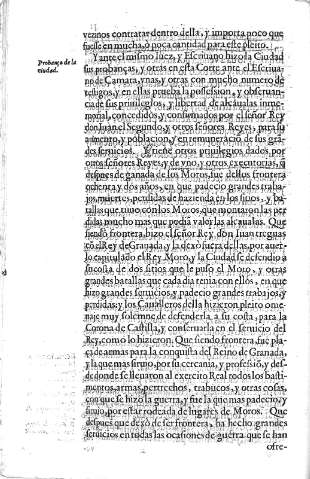 vezinos contratar dentro della, y importa poco que
fuesse en mucha, ò poca cantidad para este pleito.
Probança de la
ciudad.
Y ante el mismo luez, y Escriuano hizo la Ciudad
sus probanças, y otras en esta Corte ante el Escriua-
no de Camara, vnas, y otras con mucho numero de
testigos, y en ellas prueba la possession, y obseruan-
cia de sus priuilegios, y libertad de alcaualas inme-
morial, concedidos, y confirmados por el señor Rey
don Iuan el Segundo, y otros señores Reyes, para su
aumento, y poblacion, y en remuneracion de sus gra-
des seruicios. Y tiene otros priuilegios dados por
otros señores Reyes, y de vno, y otros executorias, q̃
despues de ganada de los Moros, fue dellos frontera
ochenta y dos años, en que padecio grandes traba-
jos, muertes, perdidas de hazienda en los sitios, y ba-
tallas que tuuo con los Moros, que montaron sus per-
didas mucho mas que podia valer las alcaualas. Que
siendo frontera, hizo el señor Rey don Iuan treguas
cõ el Rey de Granada, y la dexò fuera dellas, por auer-
lo capitulado el Rey Moro, y la Ciudad se defendio a
su costa de dos sitios que le puso el Moro, y otras
grandes batallas que cada dia tenia con ellos, en que
hizo grandes seruicios, y padecio grandes trabajos, y
perdidas, y los Caualleros della hizieron pleito ome-
naje muy solemne de defenderla a su costa, para la
Corona de Castilla, y conseruarla en el seruicio del
Rey, como lo hizieron. Que siendo frontera, fue pla-
ça de armas para la conquista del Reino de Granada,
y la que mas siruio por su cercania, y profession, y des-
de donde se lleuaron al exercito Real todos los basti-
mentos, armas, pertrechos, trabucos, y otras cosas,
con que se hizo la guerra, y fue la que mas padecio, y
siruio, por estar rodeada de lugares de Moros. Que
despues que dexò de ser frontera, ha hecho grandes
seruicios en todas las ocasiones de guerra que se han
ofre-